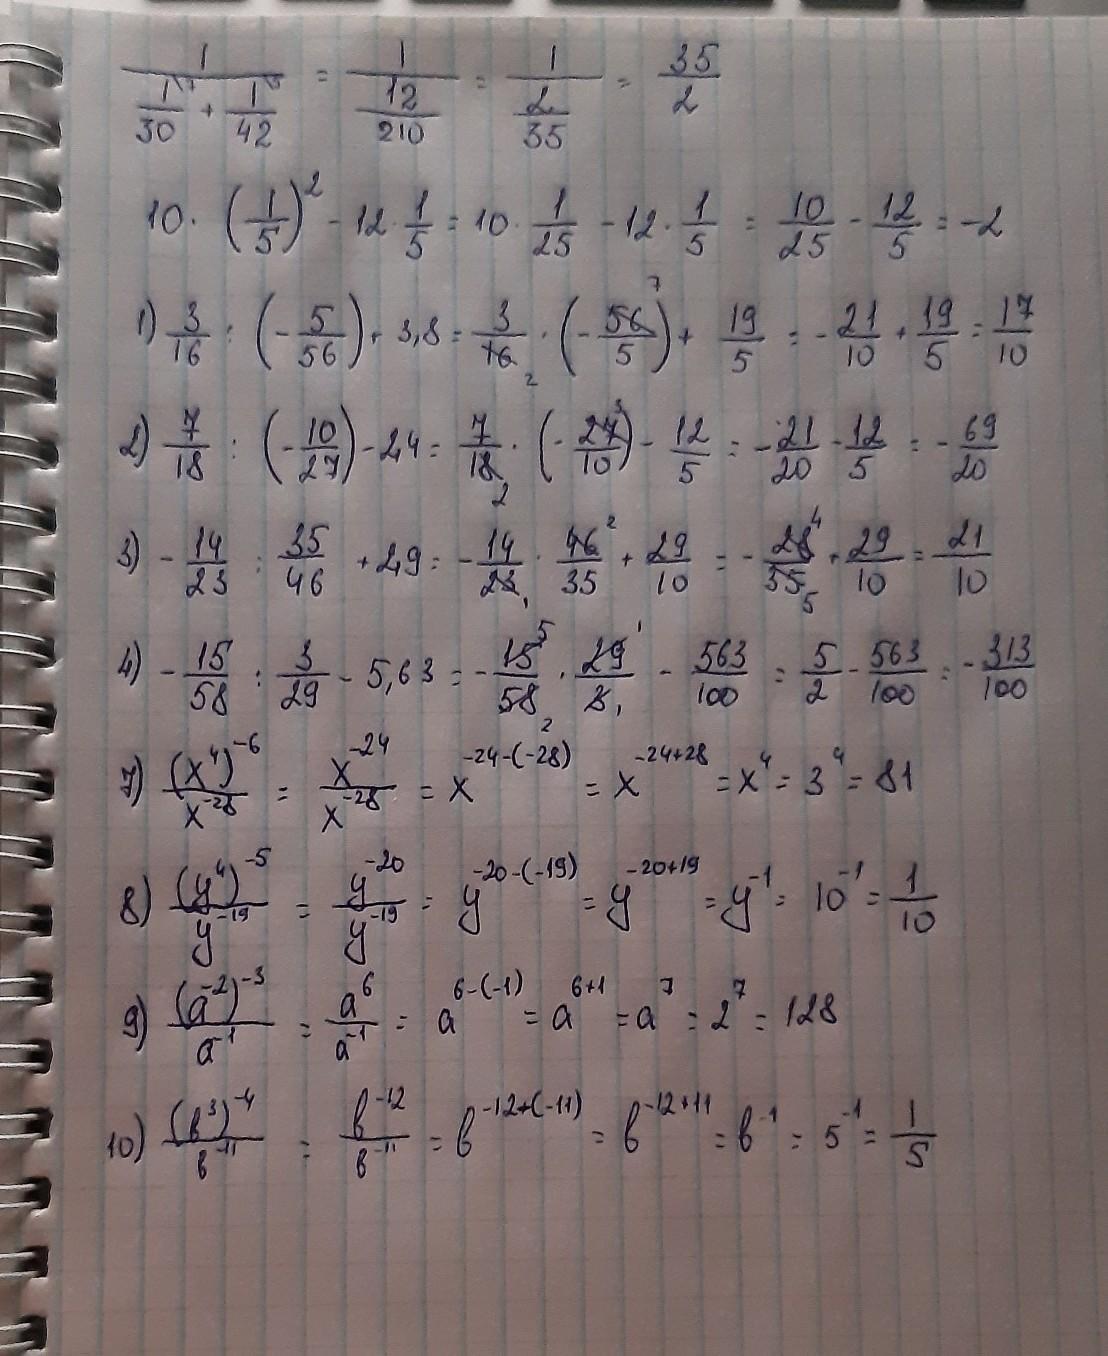 1/(1/30 + 1/42) = 1/(12/210) = 1/(2/35) = 35/2
10 · (1/5)² - 12 · 1/5 = 10 · 1/25 - 12 · 1/5 = 10/25 - 12/5 = -2
1) 3/16 : (-5/56) + 3,8 = 3/16 · (-56/5) + 19/5 = -21/10 + 19/5 = 17/10
2) 7/18 : (-10/27) - 2,4 = 7/18 · (-27/10) - 12/5 = -21/20 - 12/5 = -69/20
3) -14/23 : 35/46 + 2,9 = -14/23 · 46/35 + 29/10 = -28/35 + 29/10 = 21/10
4) -15/58 : 3/29 - 5,63 = -15/58 · 29/3 - 563/100 = 5/2 - 563/100 = -313/100
7) (x⁴)⁻⁶/x⁻²⁸ = x⁻²⁴/x⁻²⁸ = x^(-24-(-28)) = x^(-24+28) = x⁴ = 3⁴ = 81
8) (y⁴)⁻⁵/y⁻¹⁹ = y⁻²⁰/y⁻¹⁹ = y^(-20-(-19)) = y^(-20+19) = y⁻¹ = 10⁻¹ = 1/10
9) (a⁻²)⁻³/a⁻¹ = a⁶/a⁻¹ = a^(6-(-1)) = a^(6+1) = a⁷ = 2⁷ = 128
10) (b³)⁻⁴/b⁻¹¹ = b⁻¹²/b⁻¹¹ = b^(-12+(-11)) = b^(-12+11) = b⁻¹ = 5⁻¹ = 1/5